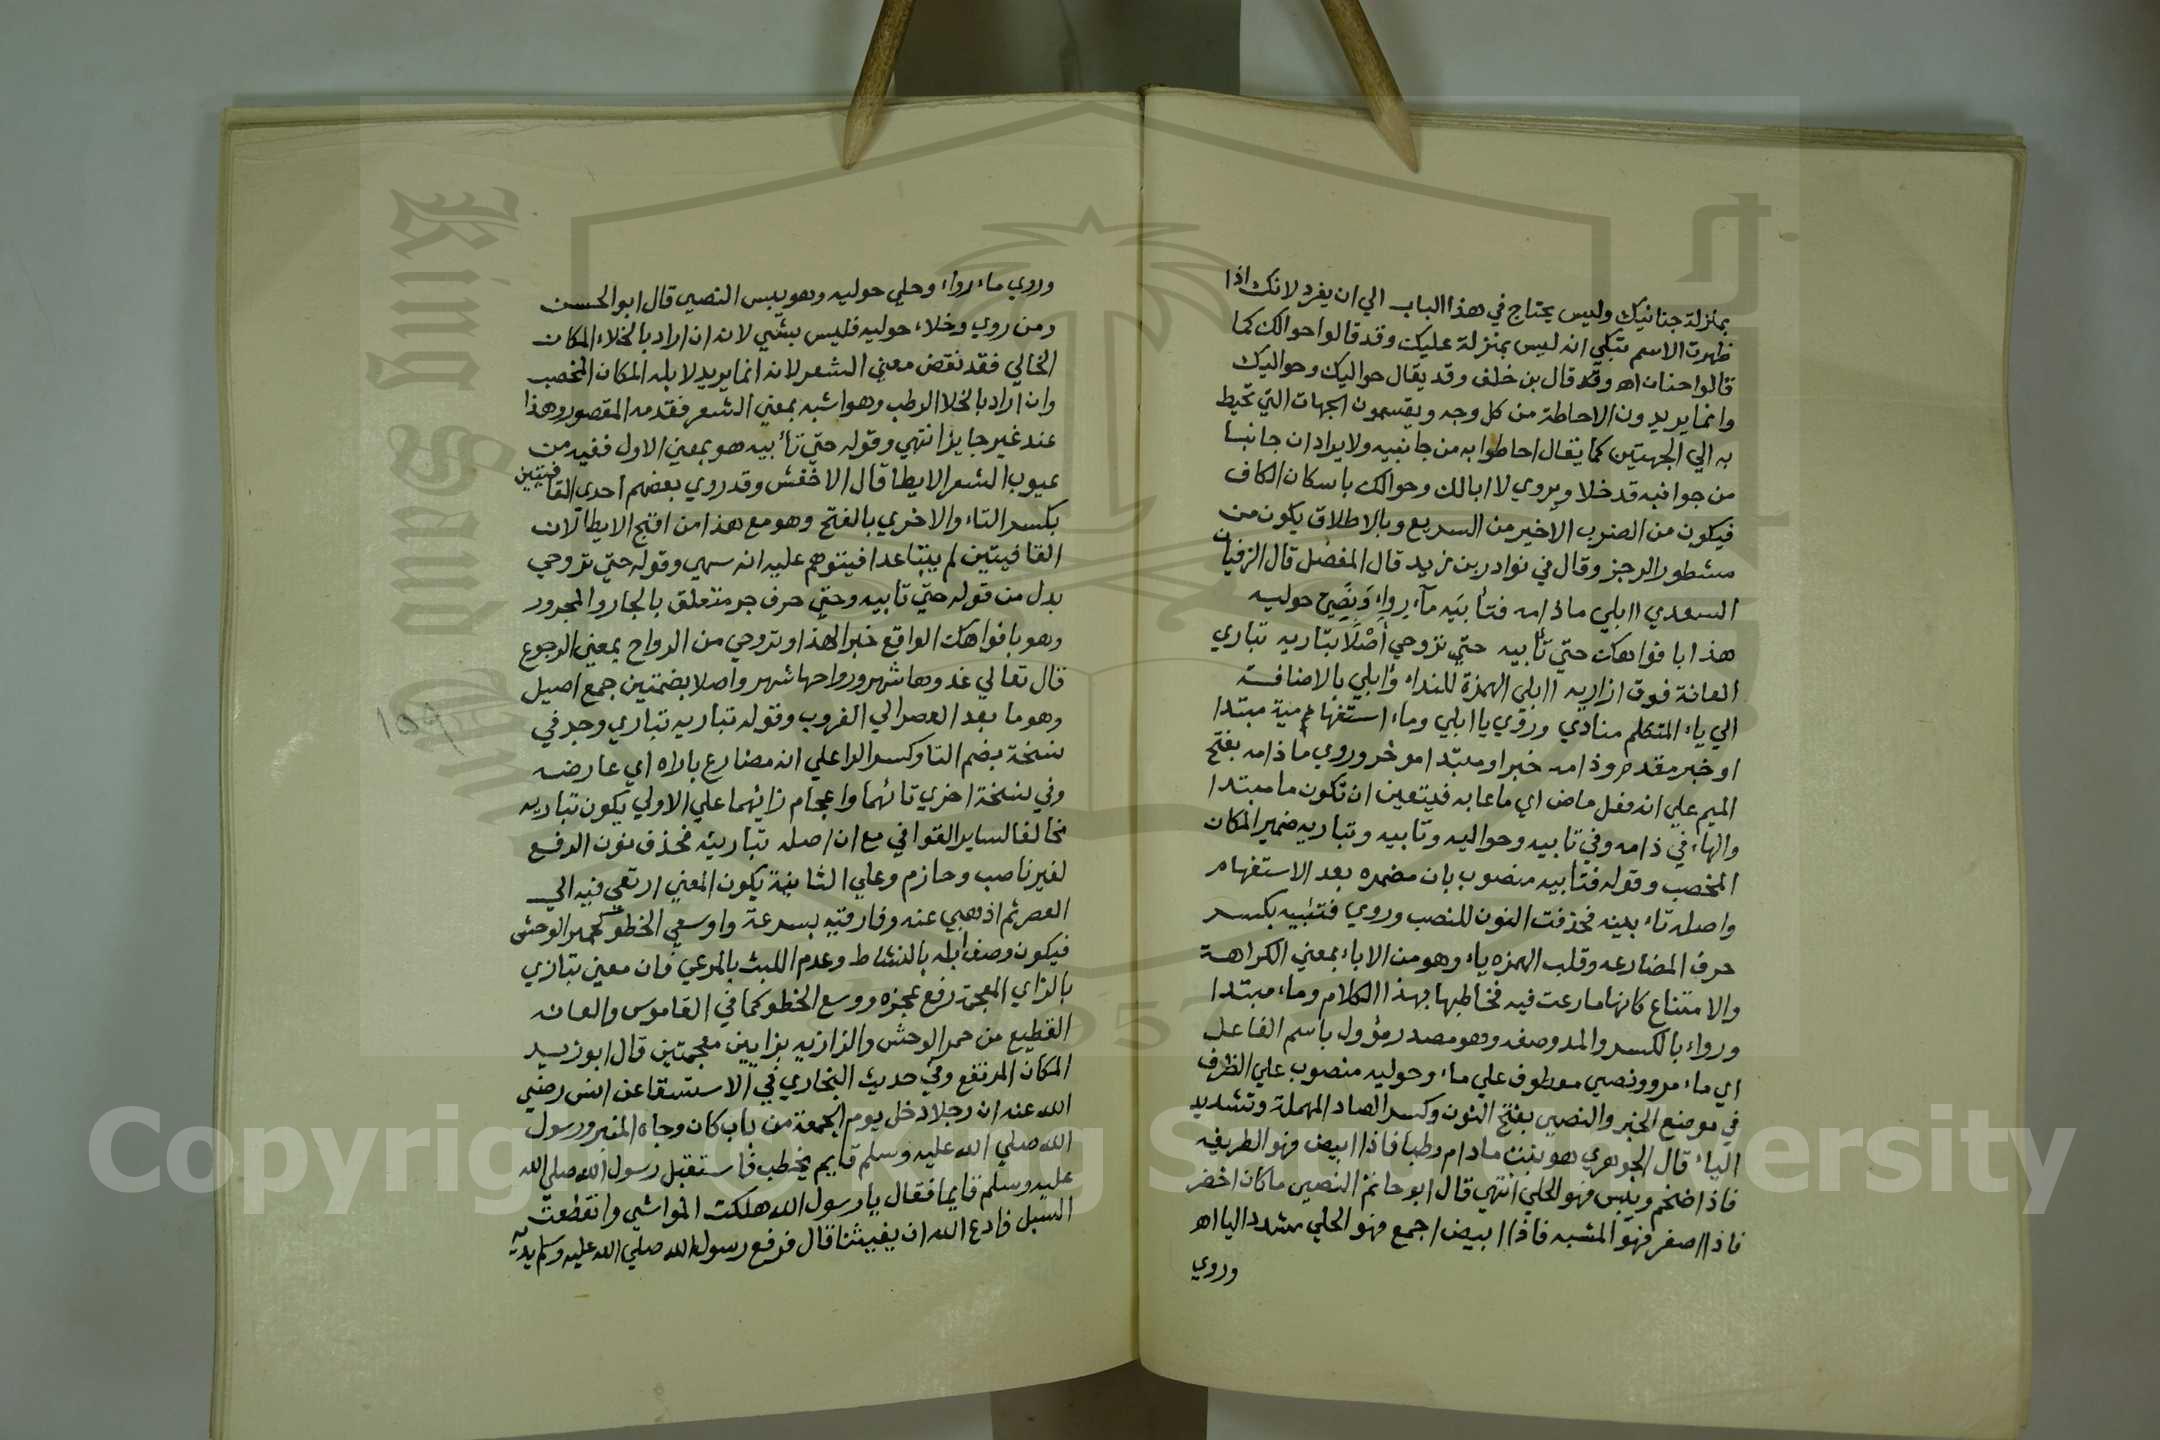 بمنزلة حنانيك وليس يحتاج في هذا الباب الي ان يفرد لانك اذا
ظهرت الاسم تبكي انه ليس بمنزلة عليك وقد قالوا حوالك كما
قالوا حنان اه وقد قال بن خلف وقد يقال حواليك وحواليك
وانما يريدون الاحاطة من كل وجه ويقسمون الجهات التي تحيط
به الي الجهتين كما يقال احاطوا به من جانبيه ولا يراد ان جانبا
من جوانبه قد خلا ويروي لا ابالك وحوالك باسكان الكاف
فيكون من الضرب الاخير من السريع وبالاطلاق يكون من
مشطور الرجز وقال في نوادر بن زيد قال المفضل قال الزفيان
السعدي اابلي ماذامه فتأبيه مآء رواء ونصي حوليه
هذا بافواهك حتي تأبيه حتي تروحي أصلا تباريه تباري
العانة فوق ازاريه اابلي الهمزة للنداء وابلي بالاضافة
الي ياء المتكلم منادي وروي يا ابلي وماء استفهامية مبتدا
او خبر مقدم وذامه خبر او مبتدا موخر وروي ماذامه بفتح
الميم علي انه فعل ماض اي ما عابه فيتعين ان تكون ما مبتدا
والهاء في ذامه وفي تابيه وحواليه وتابيه وتباريه ضمير المكان
المخصب وقوله فتأبيه منصوب بان مضمره بعد الاستفهام
واصله تاء بينه فحذفت النون للنصب وروي فتئبيه بكسر
حرف المضارعه وقلب الهمزه ياء وهو من الاباء بمعني الكراهة
والامتناع كانها مارعت فيه فخاطبها بهذا الكلام وماء مبتدا
ورواء بالكسر والمد وصف وهو مصدر مؤول باسم الفاعل
اي ماء مرو ونصي معطوف علي ماء وحوليه منصوب علي الظرف
في موضع الخبر والنصي بفتح النون وكسر الصاد المهملة وتشديد
الياء قال الجوهري هو نبت مادام رطبا فاذا ابيض فهو الطريفه
فاذا ضخم ويبس فهو الحلي انتهي قال ابو حاتم النصي ماكان اخضر
فاذا اصفر فهو المشبه فاذا ابيض اجمع فهو الحلي مشدد اليا اه
وروي
وروي ماء رواء وحلي حوليه وهو يبس النصي قال ابو الحسن
ومن روي وخلاء حوليه فليس بشي لانه ان اراد بالخلاء المكان
الخالي فقد نقض معني الشعر لانه انما يريد لابله المكان المخصب
وان اراد بالخلا الرطب وهو اشبه بمعني الشعر فقد مد المقصور وهذا
عند غير جايز انتهي وقوله حتي تأبيه هو بمعني الاول ففيه من
عيوب الشعر الايطا قال الاخفش وقد روي بعضهم احدي القافيتين
بكسر التاء والاخري بالفتح وهو مع هذا من اقبح الايطا لان
القافيتين لم يتباعدا فيتوهم عليه انه سهي وقوله حتي تروحي
بدل من قوله حتي تابيه وحتي حرف جر متعلق بالجار والمجرور
وهو بافواهك الواقع خبرا لهذا وتروحي من الرواح بمعني الرجوع
قال تعالي غدوها شهر ورواحها شهر واصلا بضمتين جمع اصيل
وهو ما بعد العصر الي الغروب وقوله تباريه تباري وجد في
نسخة بضم التا وكسر الرا علي انه مضارع باراه اي عارضه
وفي نسخة اخري تائهما واعجام زائهما علي الاولي يكون تباريه
مخالفا لساير القوافي مع ان اصله تبارينه فحذف نون الرفع
لغير ناصب وجازم وعلي الثانية يكون المعني ارتعي فيه الي
العصر ثم اذهبي عنه وفارقتيه بسرعة واوسعي الخطو كحمر الوحش
فيكون وصف ابله بالنشاط وعدم اللبث بالمرعي فان معني تبازي
بالزاي المعجمة رفع عجزه ووسع الخطو كما في القاموس والعانه
القطيع من حمر الوحش والزازيه بزايين معجمتين قال ابو زيد
المكان المرتفع وفي حديث البخاري في الاستسقا عن انس رضي
الله عنه ان رجلا دخل يوم الجمعة من باب كان وجاه المنبر ورسول
الله صلي الله عليه وسلم قايم يخطب فاستقبل رسول الله صلي الله
عليه وسلم قايما فقال يا رسول الله هلكت المواشي وانقطعت
السبل فادع الله ان يغيثنا قال فرفع رسول الله صلي الله عليه وسلم يديه
109
King Saud University
1957
Copyright © King Saud University